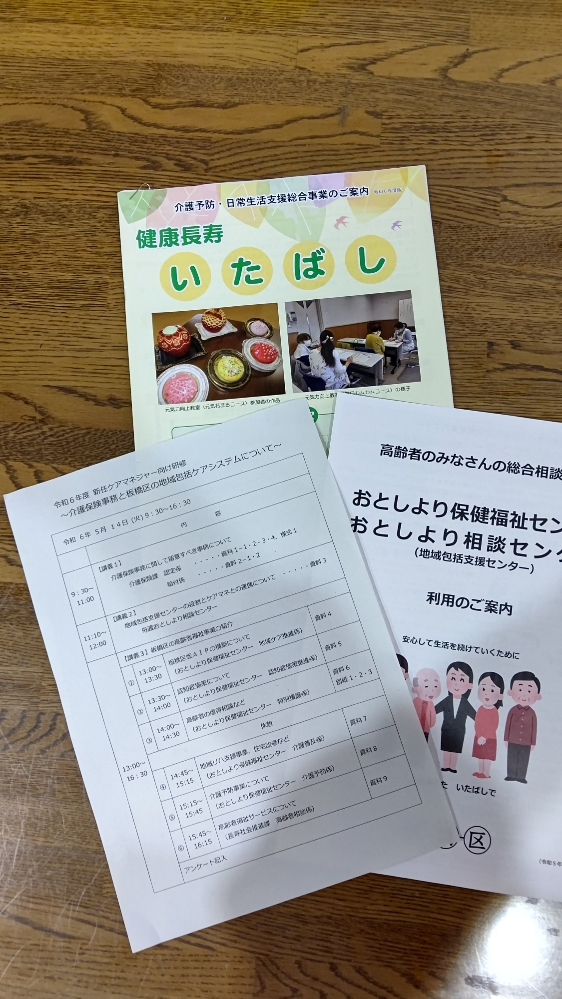 介護予防・日常生活支援総合事業のご案内
健康長寿
いたばし
令和6年度 新任ケアマネジャー向け研修
～介護保険事務と板橋区の地域包括ケアシステムについて～
令和 6年 5月 14日 (火) 9：30～16：30
内 容
9：30～
11:00
【講義1】
介護保険事務に関して留意すべき事項について
介護保険課 認定係 ・・・・・資料1－1・2・3・4、様式1
給付係 ・・・・・資料2－1・2
11:10～
12:00
【講義2】
地域包括支援センターの役割とケアマネとの連携について ・・・・・資料3
おとしより相談センター
13:00～
16：30
【講義3】板橋区の高齢者福祉事業の紹介
① 13:00～
13:30
板橋区版AIPの構築について
(おとしより保健福祉センター 地域ケア推進係)
資料4
② 13:30～
14:00
認知症施策について
(おとしより保健福祉センター 認知症施策推進係)
資料5
③ 14:00～
14:30
高齢者の虐待相談など
(おとしより保健福祉センター
資料6
1・2・3
休憩
④ 14:45～
15:15
地域リハ支援事業、住宅改修など
(おとしより保健福祉センター 介護普及係)
資料7
⑤ 15:15～
15:45
介護予防事業について
(おとしより保健福祉センター 介護予防係)
資料8
⑥ 15:45～
16:15
高齢者福祉サービスについて
(長寿社会推進課 高齢者相談係)
資料9
アンケート記入
高齢者のみなさんの総合相談
おとしより保健福祉セン
おとしより相談セン
(地域包括支援センター)
利用のご案内
安心して生活を続けていくために
た いたばしで
区